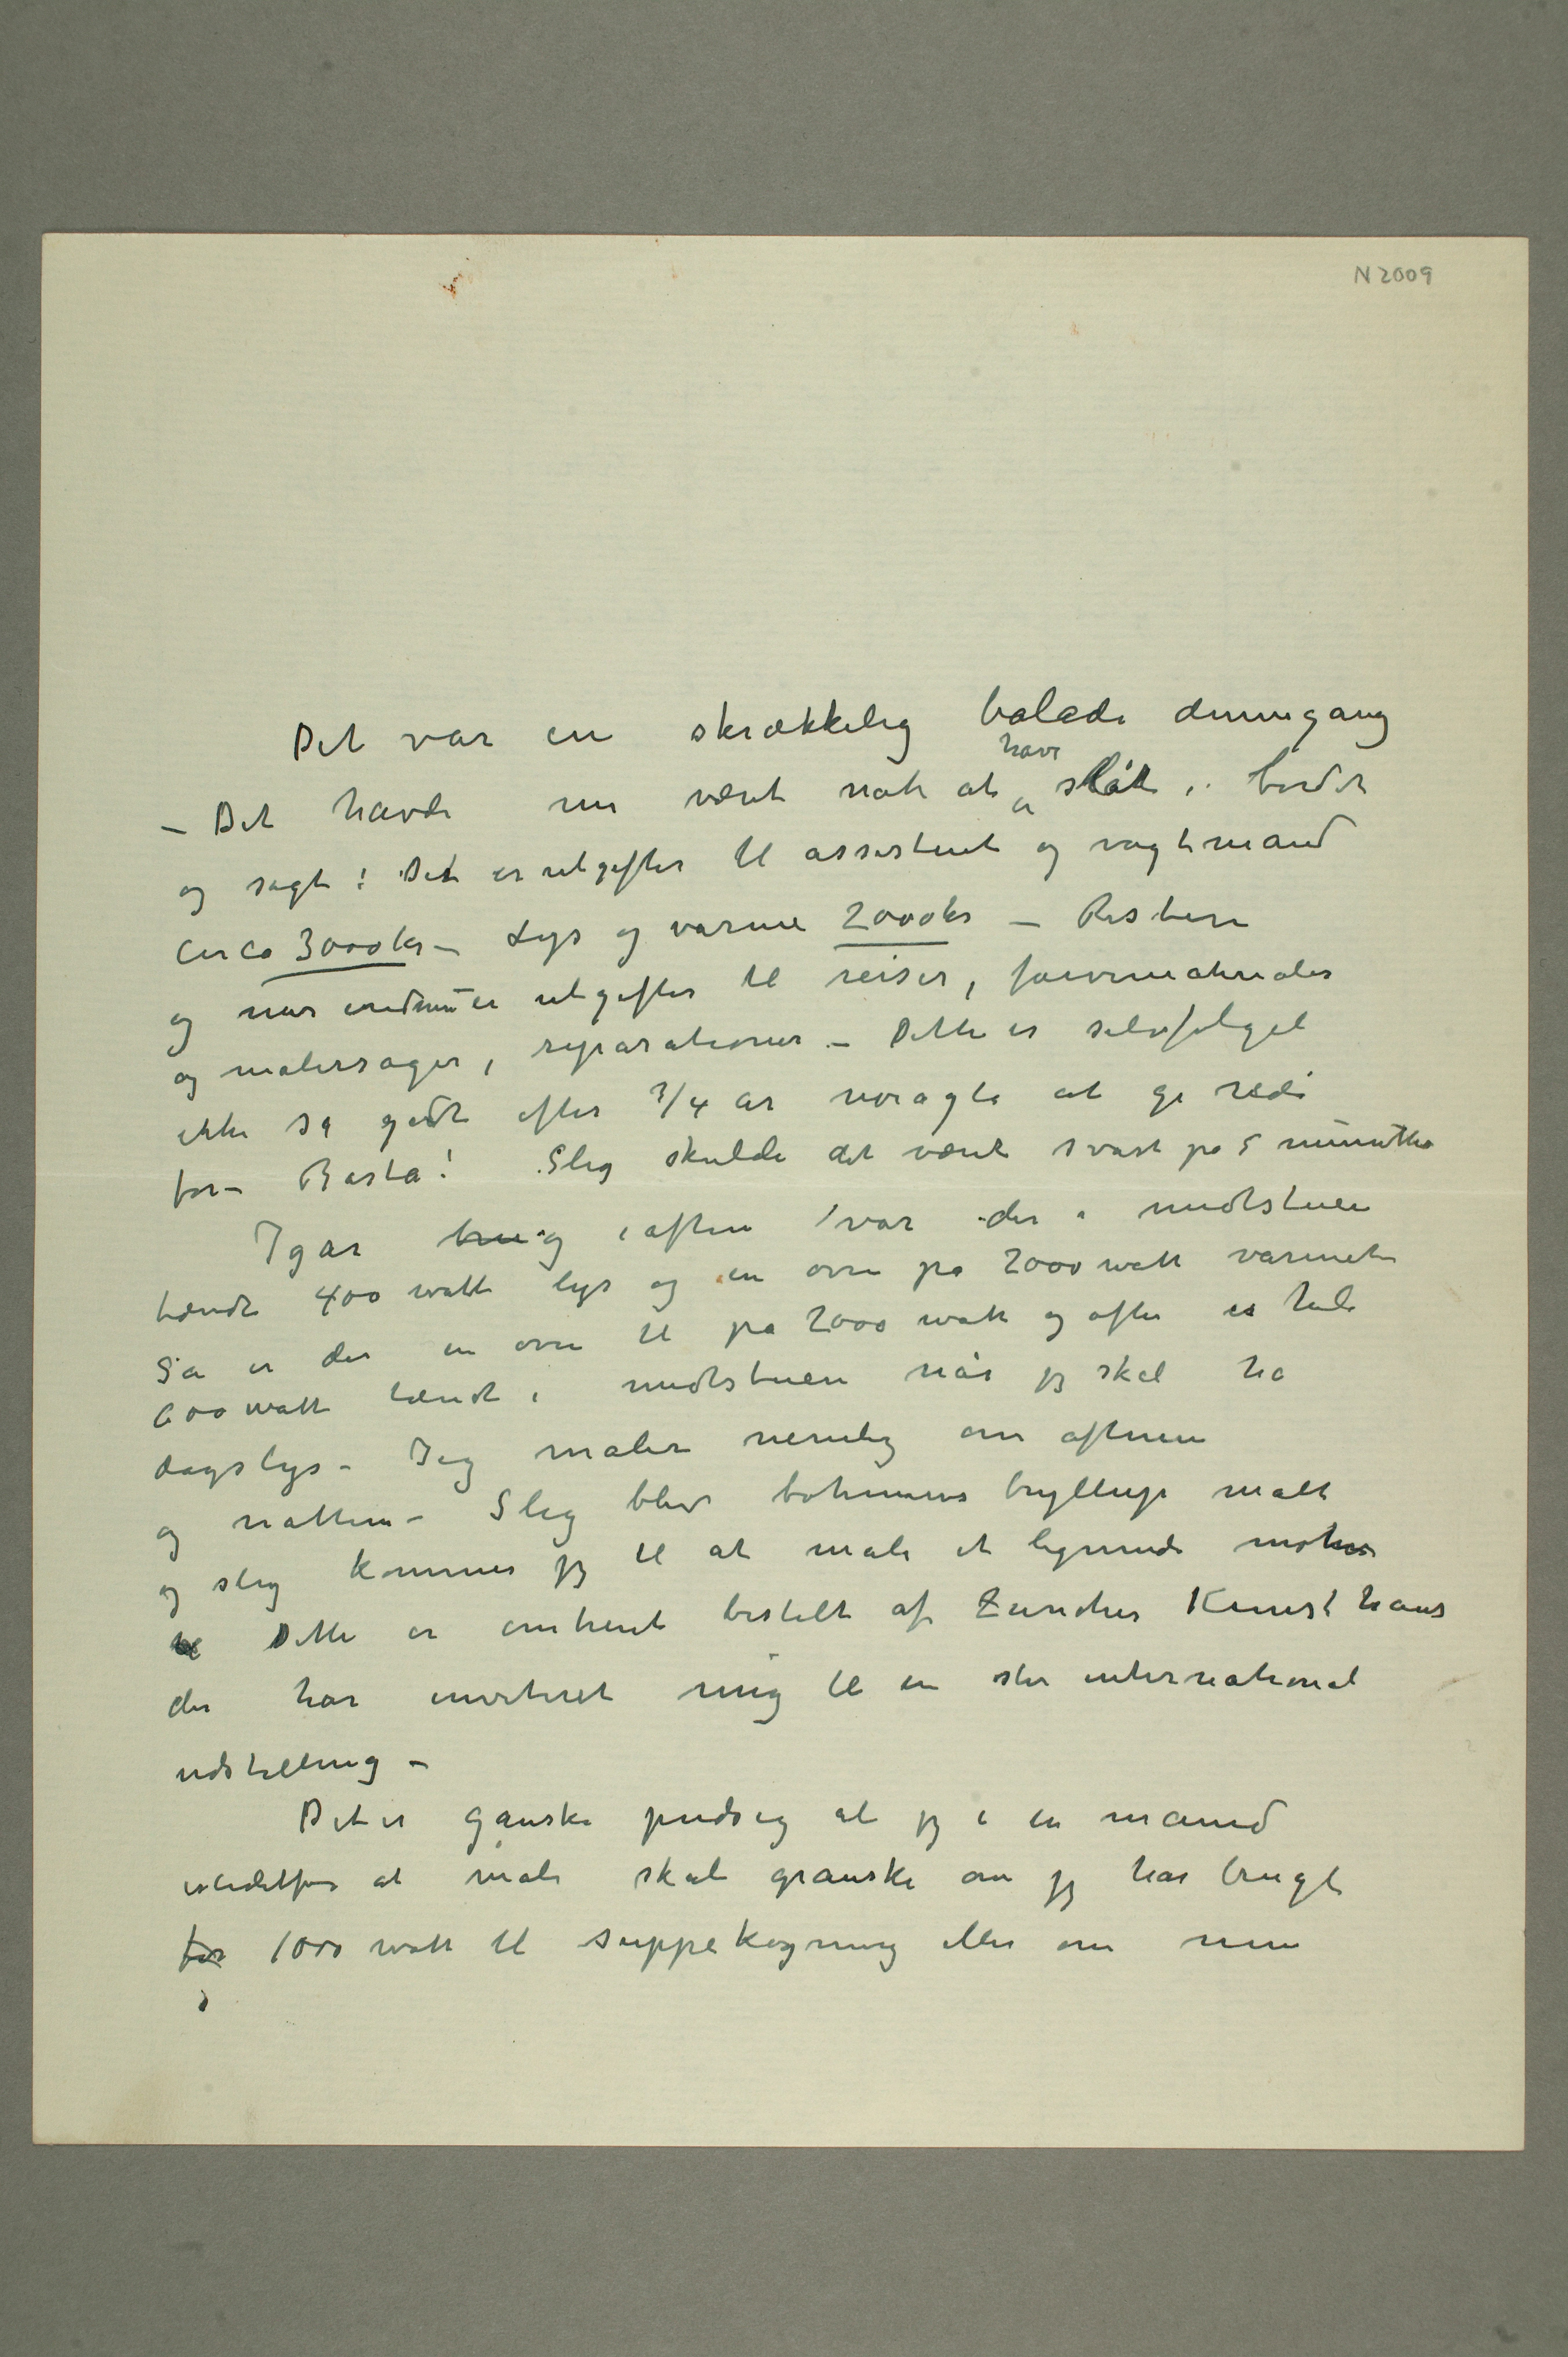 N 2009
Det var en skrækkelig balade dennegang
– Det havde nu været nok at have slåt i bordet
og sagt: Det er utgifter til assistent og vagtmand
Circa 3000 kr – Lys og varme 2000 kr – Resten
og mer endnu er utgifter til reiser, farvematerialer
og malersager, reparationer – Dette er selvfølgelig
ikke så godt efter 3/4 år nøiagtig at gi rede
for – Basta! Slig skulde det været svart på 5 minutter
Igår og iaften var der i midtstuen
tændt 400 watt lys og en ovn på 2000 watt varmet
Så er der en ovn til på 2000 watt og ofte er hele
600 watt tændt i midtstuen når jeg skal ha
dagslys – Jeg maler nemlig om aftenen
og natten – Slig blev bohemens bryllup malt
og slig kommer jeg til at male et lignende motiv
Dette er omtrent bestilt af Züricher Kunsthaus
der har inviteret mig til en stor international
udstilling –
Det er ganske pudsig at jeg i en måned
istedetfor at male skal granske om jeg har brugt
for 1000 watt til suppekogning eller om min